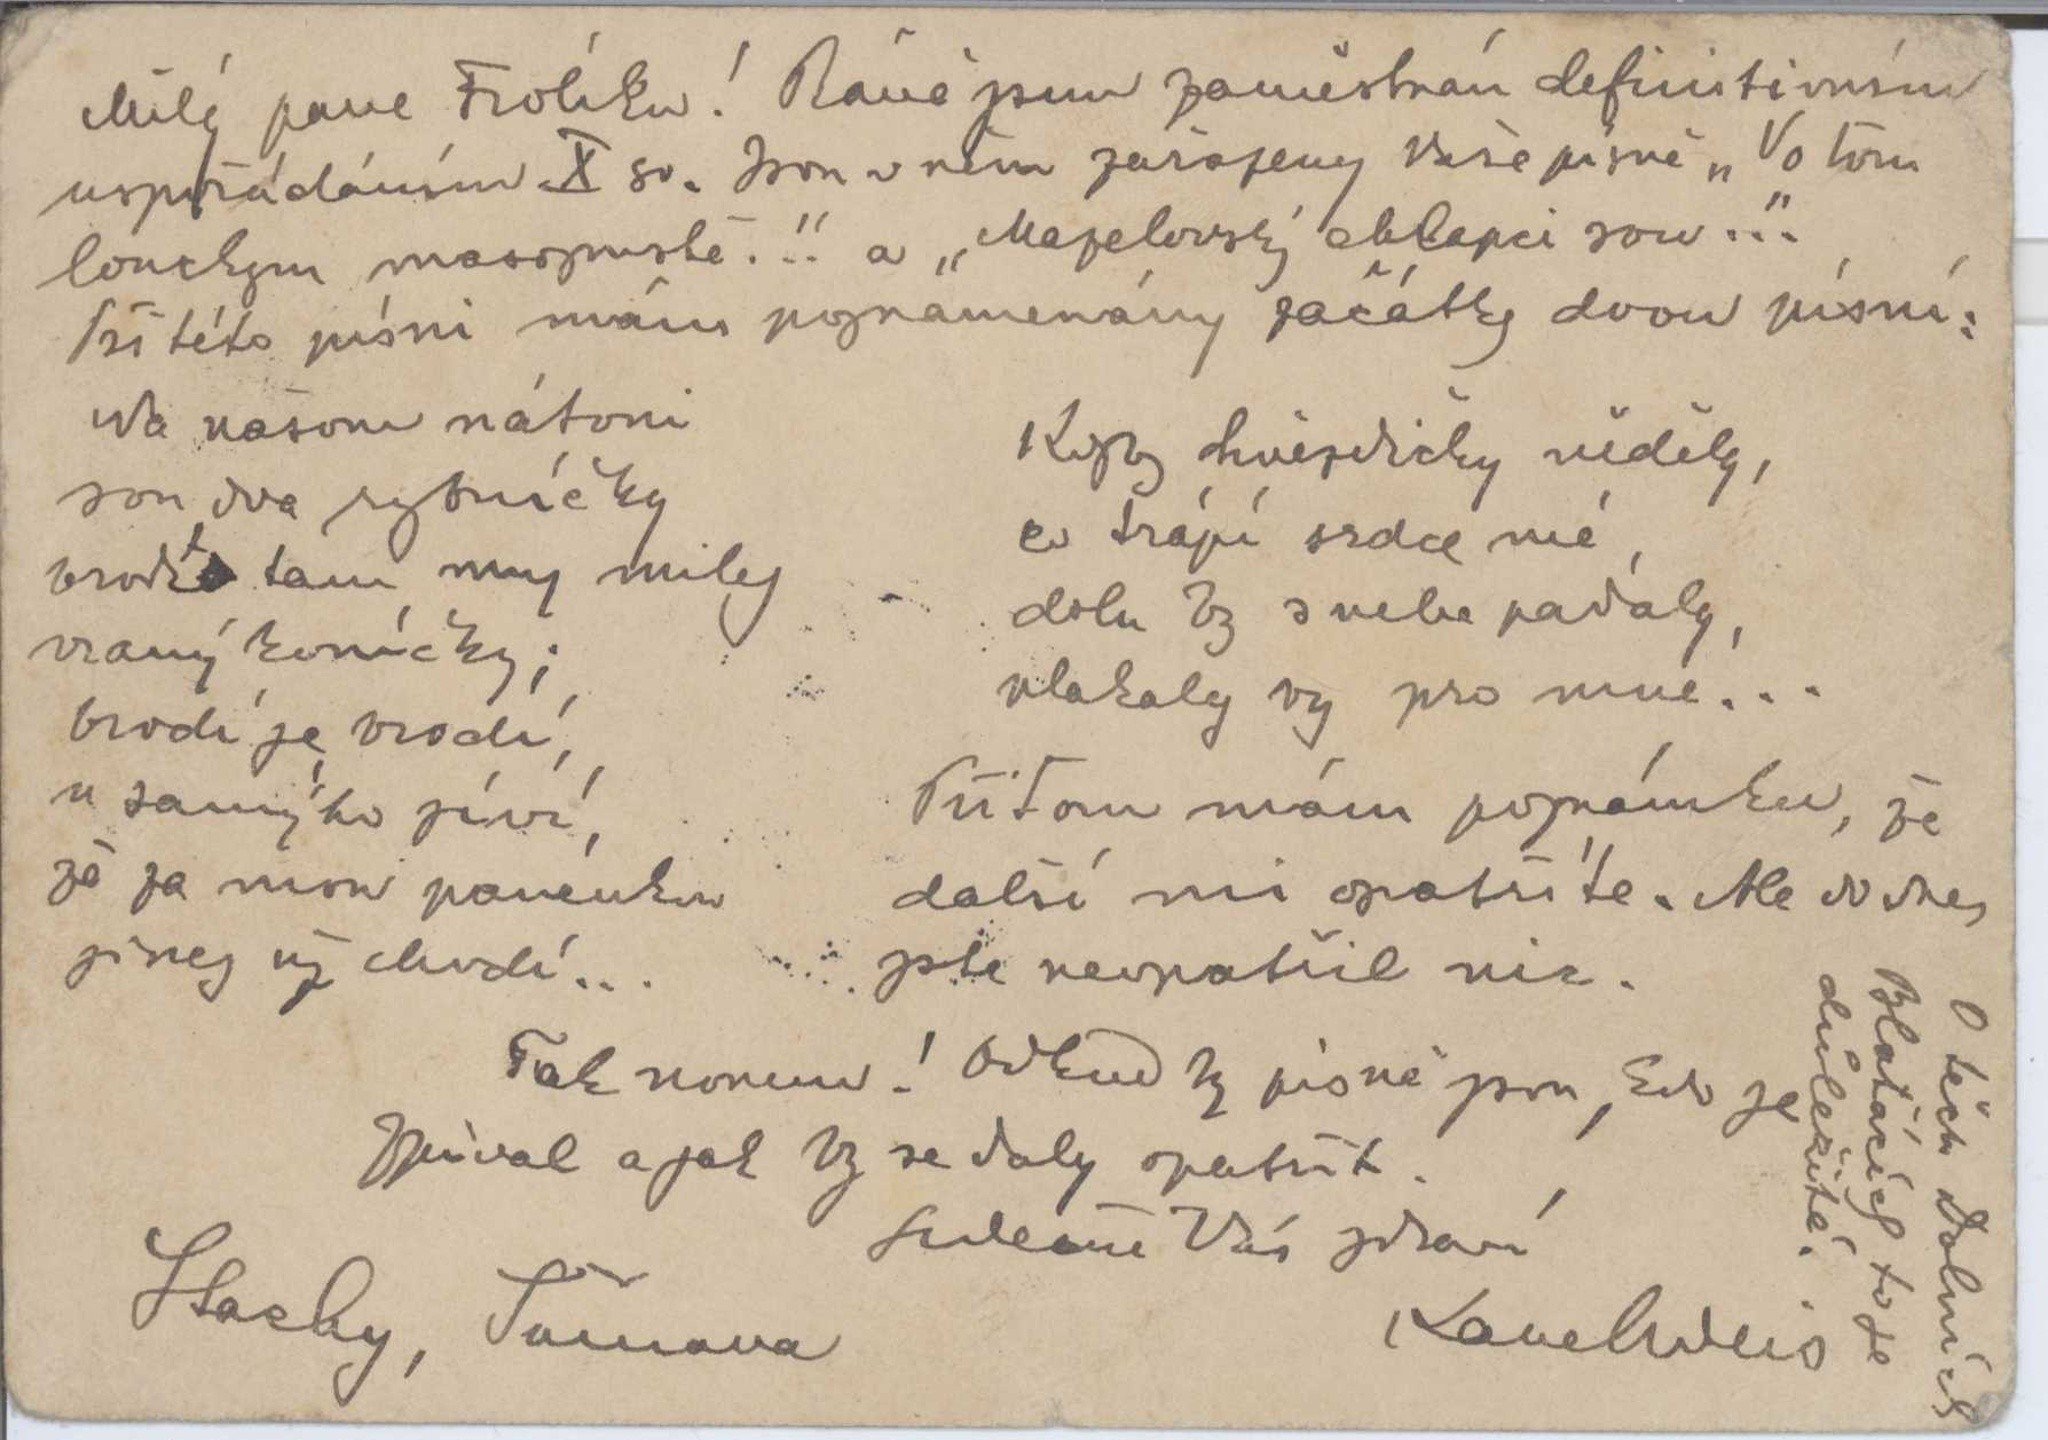 Milý pane Frolíku! Ráně jsem zaměstnán definitivním
uspořádáním X sv. Jsou v něm zařazeny Vaše písně „Vo tom
louckym masopustě..." a „Mazelovský chlapci sou..."
Při této písni mám poznamenány začátky dvou písní:
Na našom nátoni
sou dva rybníčky
brodí tam muj miley
vraný koníčky;
brodí je brodí,
u samýho
že za mou panenkou
jiney už chodí...
Kdyby hvězdičky věděly,
co trápí srdce mé,
dolu by s nebe padaly,
plakaly by pro mne...
Při tom mám poznámku, že
další mi opatříte. Ale do dnes
jste neopatřil nic.
Tak honem! Odkud ty písně jsou, kdo je
zpíval a jak by se daly opatřit.
Srdečně Vás zdraví
Karel Weis
Stachy, Šumava
O těch Dolních
Blatácích to je
důležité!